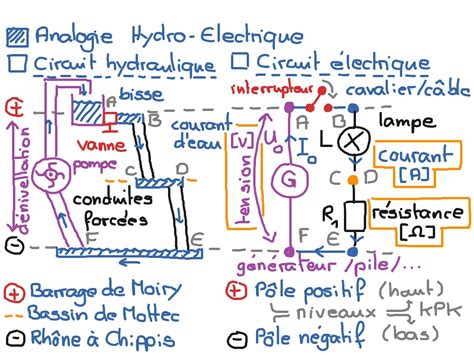 Analogie Hydro-Electrique
Circuit hydraulique
Circuit électrique
bisse
interrupteur
cavalier/câble
+
A
B
vanne
pompe
dénivellation
courant d'eau
C
D
conduites forcées
F
E
-
[V]
tension
U₀
I₀
G
A
B
L
X
lampe
courant [A]
C
D
R₁
résistance [Ω]
F
E
générateur/pile/...
+ Barrage de Moiry
-- Bassin de Mottec
- Rhône à Chippis
+ Pôle positif (haut)
niveaux kPk
- Pôle négatif (bas)